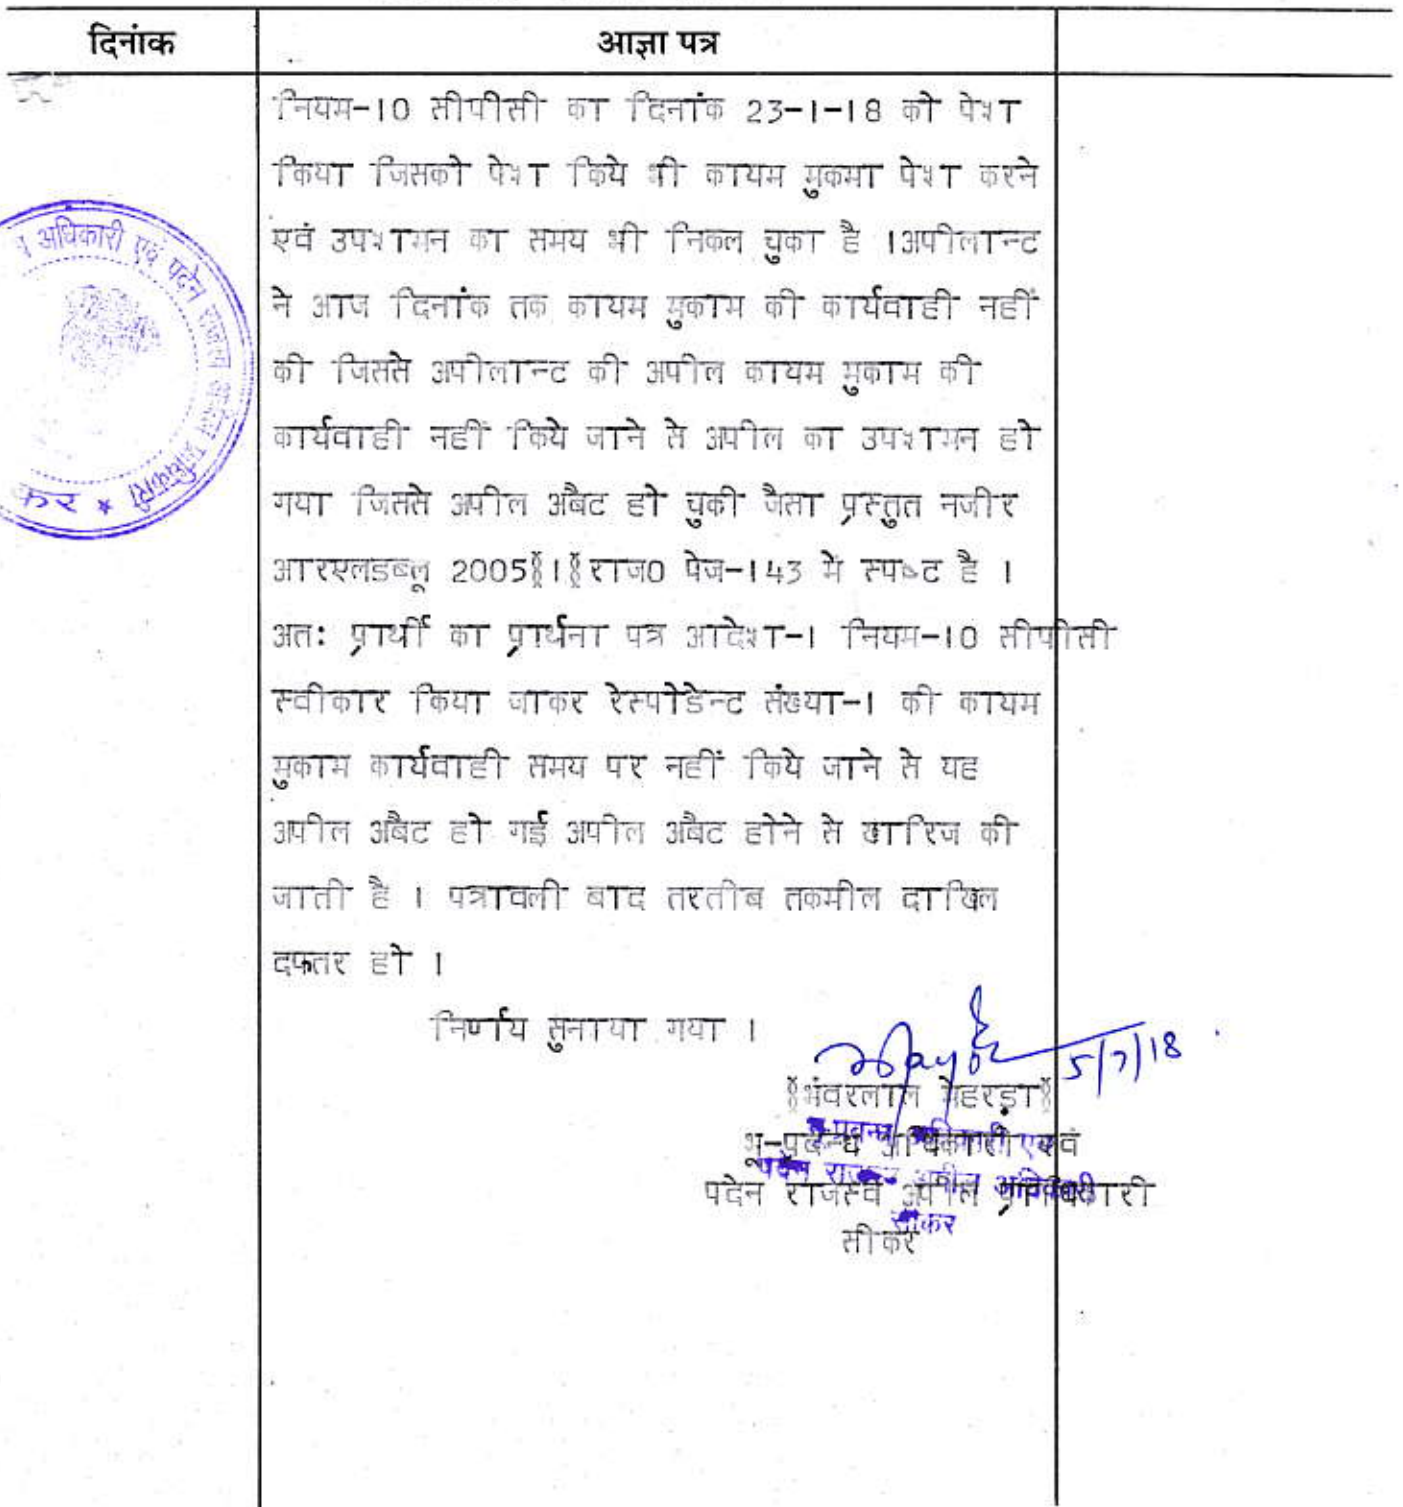 दिनांक
आज्ञा पत्र
नियम-10 सीपीसी का दिनांक 23-1-18 को पेश
किया जिसको पेश किये भी कायम मुकमा पेश करने
एवं उपशमन का समय भी निकल चुका है ।अपीलान्ट
ने आज दिनांक तक कायम मुकाम की कार्यवाही नहीं
की जिससे अपीलान्ट की अपील कायम मुकाम की
कार्यवाही नहीं किये जाने से अपील का उपशमन हो
गया जिससे अपील अबैट हो चुकी जैसा प्रस्तुत नजीर
आरएलडब्लू 2005§1§राज0 पेज-143 मे स्पष्ट है ।
अतः प्रार्थी का प्रार्थना पत्र आदेश-1 नियम-10 सीपीसी
स्वीकार किया जाकर रेस्पोडेन्ट संख्या-1 की कायम
मुकाम कार्यवाही समय पर नहीं किये जाने से यह
अपील अबैट हो गई अपील अबैट होने से खारिज की
जाती है । पत्रावली बाद तरतीब तकमील दाखिल
दफतर हो ।
निर्णय सुनाया गया ।
5/7/18
§भंवरलाल मेहरड़ा§
भू-प्रबन्ध अधिकारी एवं
पदेन राजस्व अपील प्राधिकारी
सीकर
सीकर
अधिकारी एवं पदेन राजस्व अपील प्राधिकारी ★